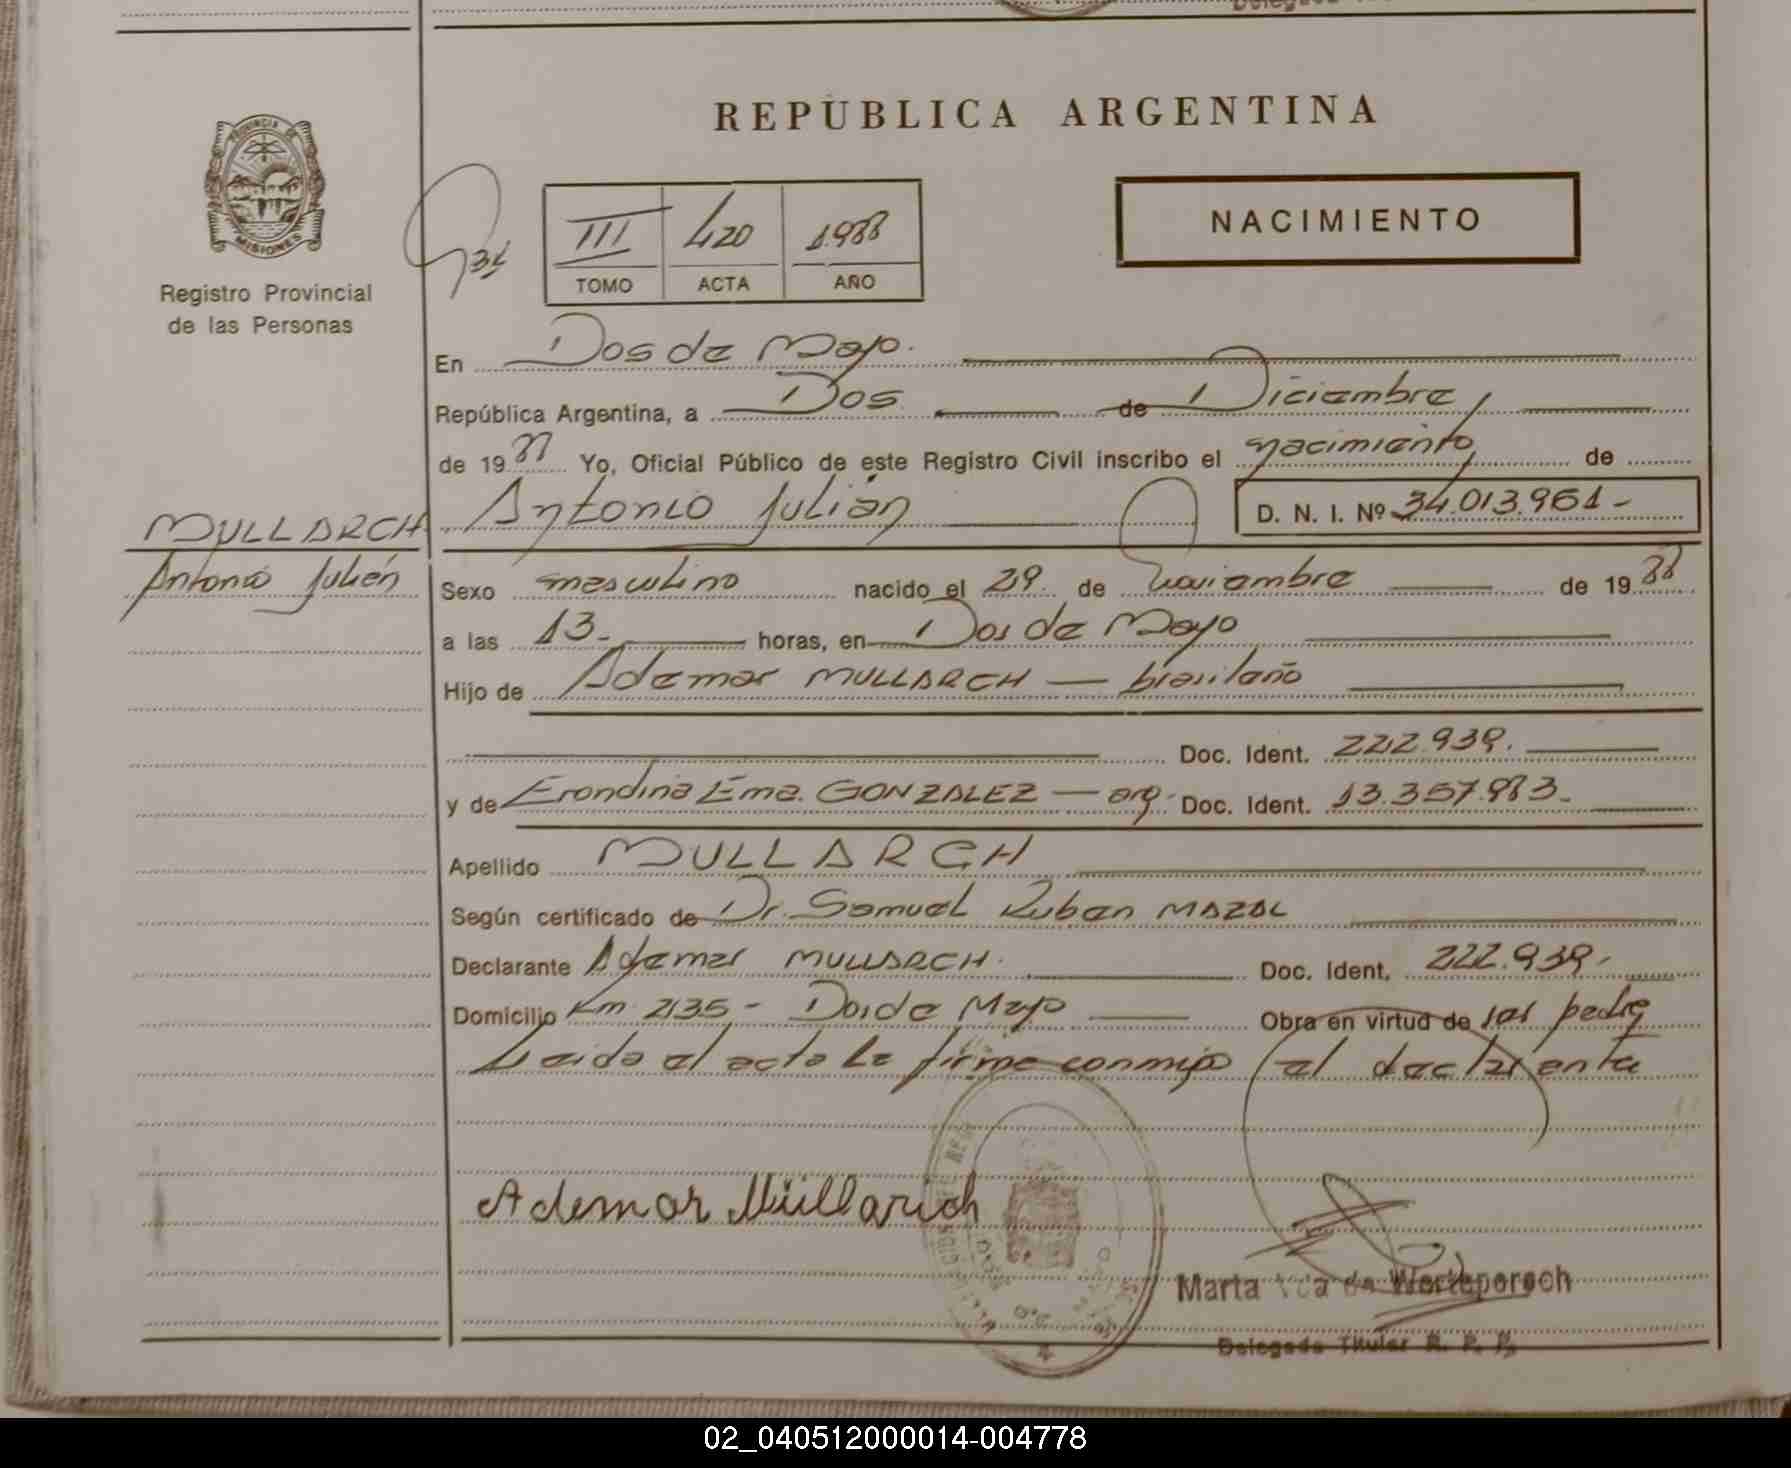 REPUBLICA ARGENTINA
PROVINCIA DE
MISIONES
Registro Provincial
de las Personas
III 420 1.988
TOMO ACTA AÑO
NACIMIENTO
En Dos de Mayo.
República Argentina, a Dos de Diciembre
de 1988 Yo, Oficial Público de este Registro Civil inscribo el nacimiento de
MULLARCH
Antonio Julián
Antonio Julián D. N. I. Nº 34.013.961-
Sexo masculino nacido el 29 de Noviembre de 1988
a las 13- horas, en Dos de Mayo
Hijo de Ademar MULLARCH — brasilaño
Doc. Ident. 222.939.
y de Erondina Ema. GONZALEZ — arg. Doc. Ident. 13.357.983-
Apellido MULLARCH
Según certificado de Dr. Samuel Ruban MAZAL
Declarante Ademar MULLARCH. Doc. Ident. 222.939.
Domicilio Km 235 - Dos de Mayo Obra en virtud de ser padre
Leida el acta la firma conmigo el declarante
Ademar Müllarich
Marta de
Delegada Titular R. P. P.
02_040512000014-004778